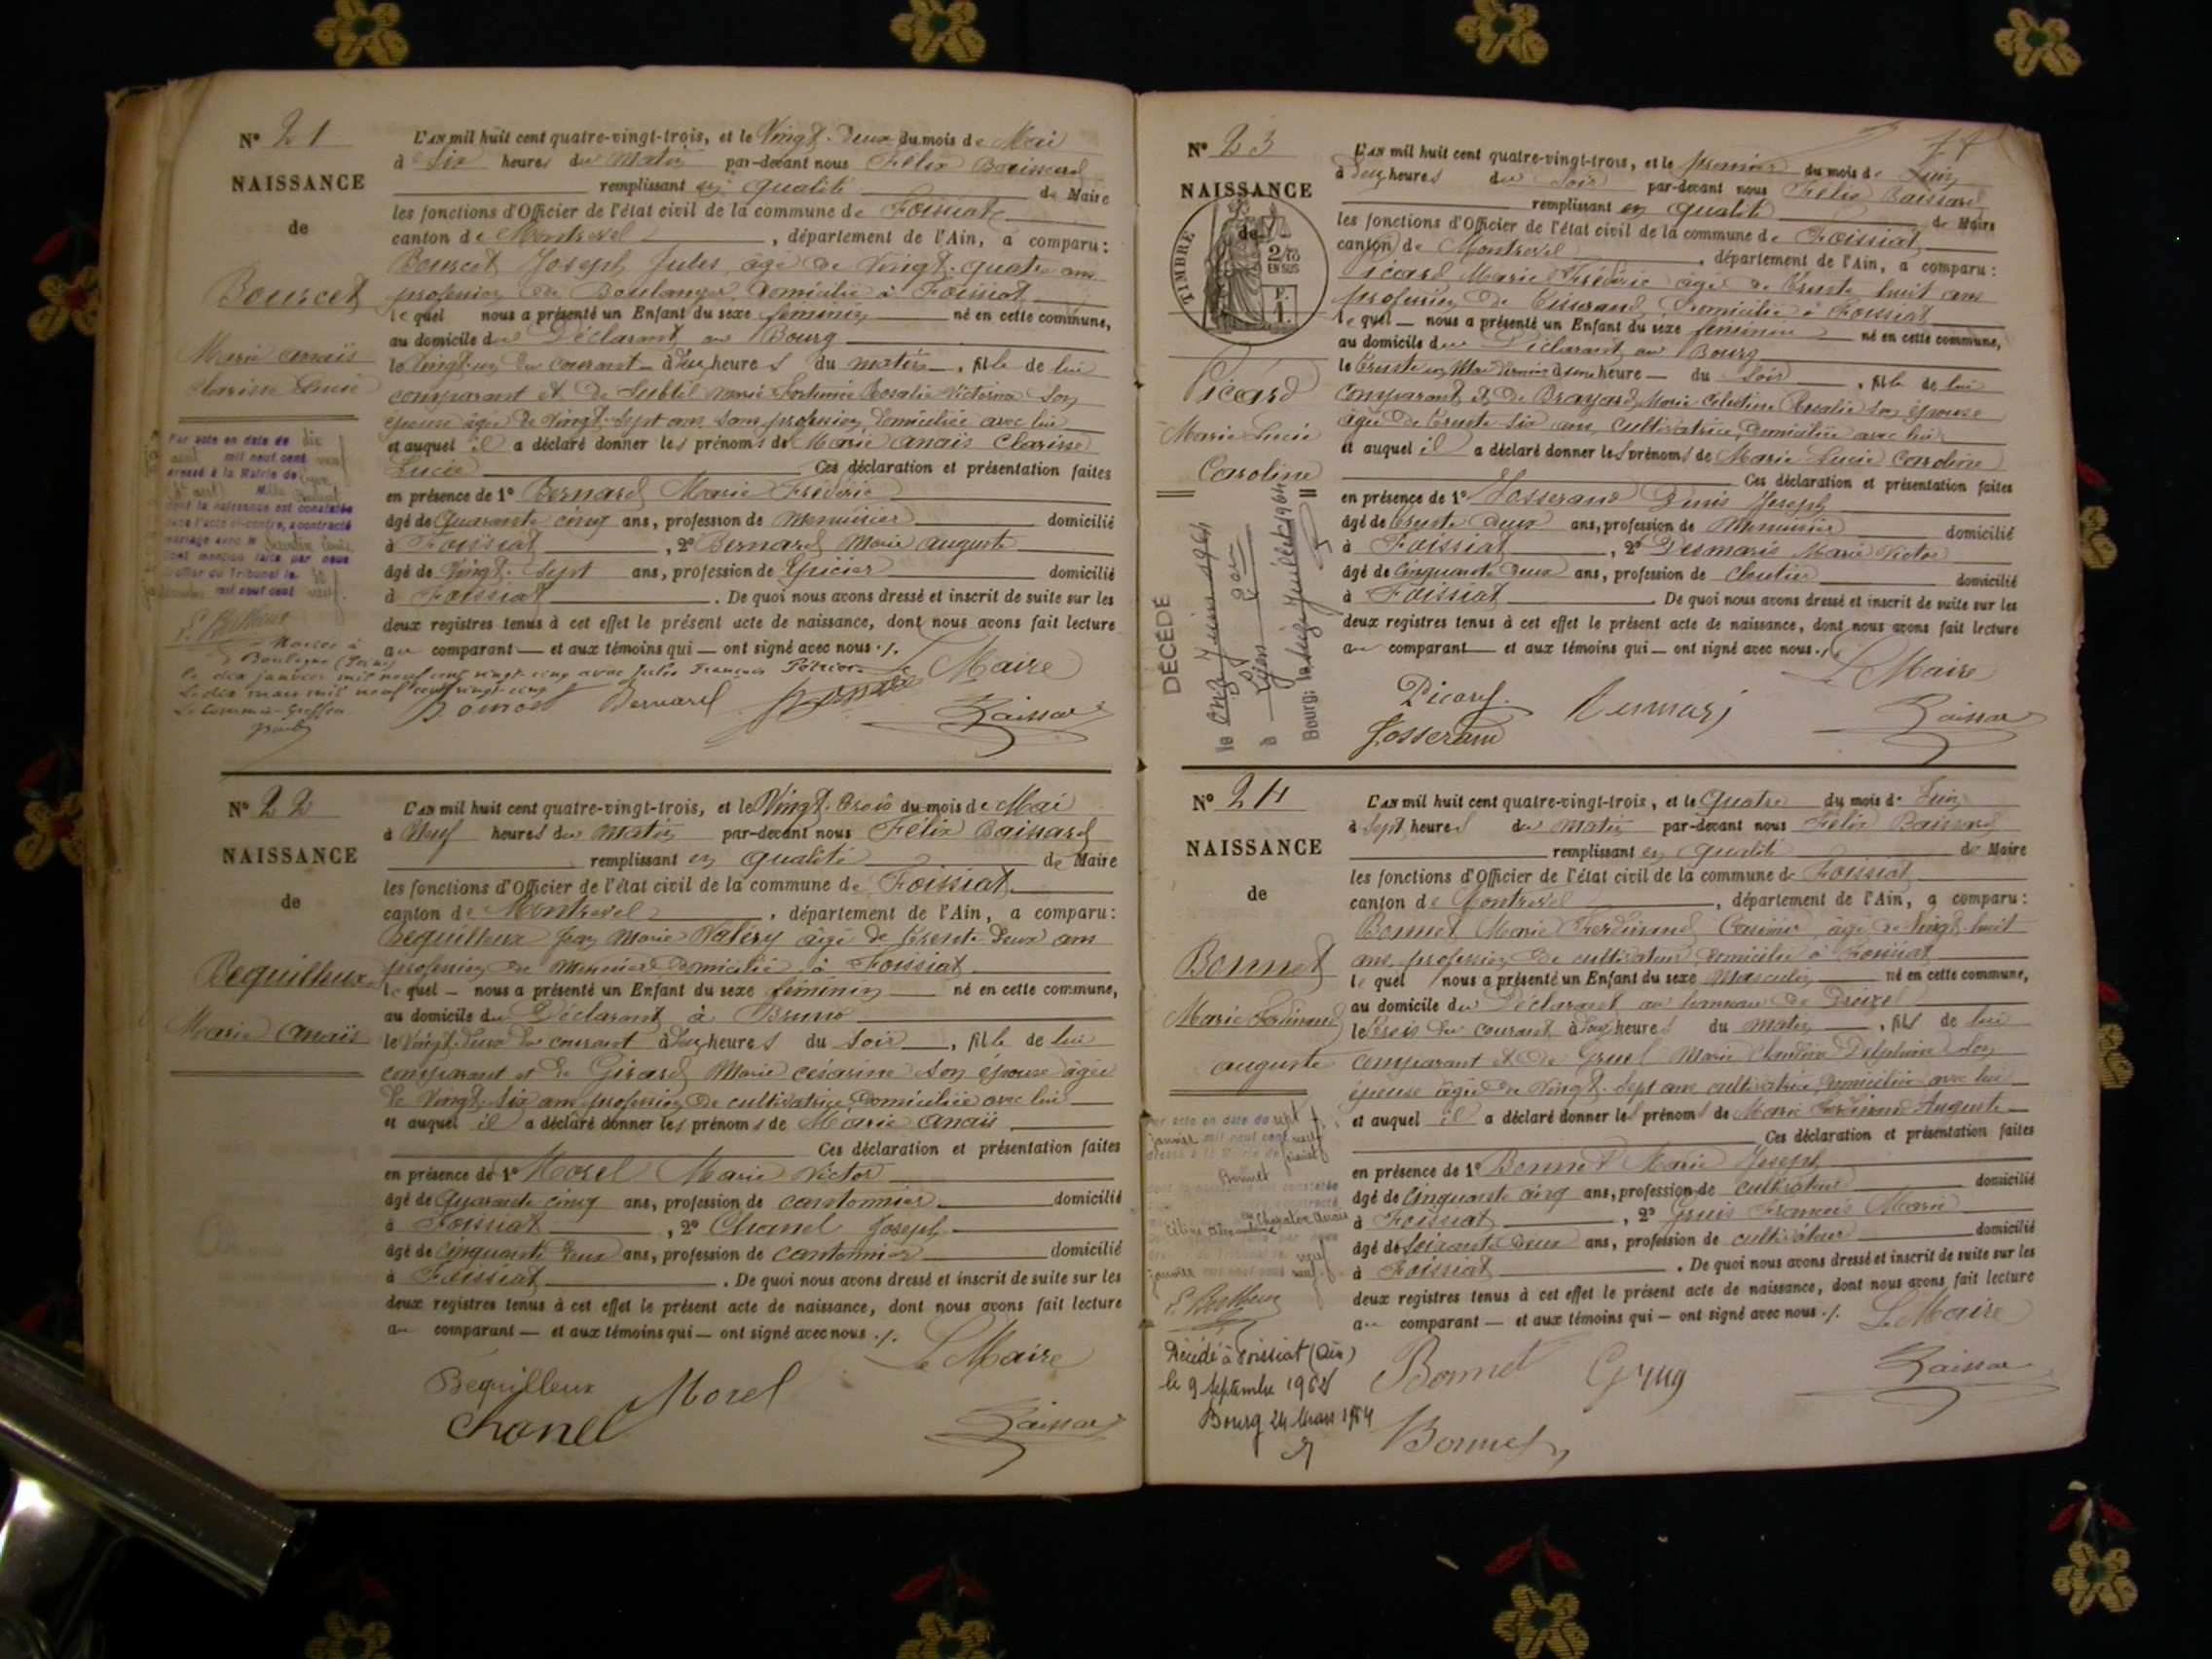 N° 21
NAISSANCE
de
Bourcet
Marie Anaïs
Clarisse Lucie
L'AN mil huit cent quatre-vingt-trois, et le Vingt-deux du mois de Mai
à Six heures du matin par-devant nous Félix Baissard
remplissant en qualité de Maire
les fonctions d'Officier de l'état civil de la commune de Foissiat
canton de Montrevel, département de l'Ain, a comparu:
Bourcet Joseph Jules, âgé de Vingt-quatre ans
profession de Boulanger, domicilié à Foissiat
lequel nous a présenté un Enfant du sexe féminin né en cette commune,
au domicile du Déclarant au Bourg
le Vingt-un du courant à deux heures du matin, fille de lui
comparant et de Subtil Marie Fortunée Rosalie Victorine son
épouse âgée de Vingt-sept ans sans profession, domiciliée avec lui
et auquel il a déclaré donner les prénoms de Marie Anaïs Clarisse
Lucie Ces déclaration et présentation faites
en présence de 1° Bernard Marie Frédéric
âgé de Quarante cinq ans, profession de Menuisier domicilié
à Foissiat, 2° Bernard Marie Auguste
âgé de Vingt-sept ans, profession de Epicier domicilié
à Foissiat. De quoi nous avons dressé et inscrit de suite sur les
deux registres tenus à cet effet le présent acte de naissance, dont nous avons fait lecture
au comparant — et aux témoins qui — ont signé avec nous ./.
Le Maire
Bourcet Bernard Baissard
Par acte en date du dix
août mil neuf cent neuf
dressé à la Mairie de Lyon
dont la naissance est constatée
dans l'acte ci-contre, a contracté
mariage avec M
Dont mention faite par nous
Greffier du Tribunal le
mil neuf cent neuf.
Mariée à
Boulogne (Seine)
le dix janvier mil neuf cent vingt-cinq avec Jules François Poirier
Le dix mars mil neuf cent vingt-cinq
Le Commis-Greffier
N° 22
NAISSANCE
de
Bequilleux
Marie Anaïs
L'AN mil huit cent quatre-vingt-trois, et le Vingt-trois du mois de Mai
à Neuf heures du matin par-devant nous Félix Baissard
remplissant en qualité de Maire
les fonctions d'Officier de l'état civil de la commune de Foissiat
canton de Montrevel, département de l'Ain, a comparu:
Bequilleux Jean Marie Valéry âgé de trente deux ans
profession de Menuisier domicilié à Foissiat
lequel — nous a présenté un Enfant du sexe féminin né en cette commune,
au domicile du Déclarant à Bruno
le Vingt-deux du courant à deux heures du soir, fille de lui
comparant et de Girard Marie Césarine son épouse âgée
de Vingt-six ans profession de cultivatrice, domiciliée avec lui
et auquel il a déclaré donner les prénoms de Marie Anaïs
Ces déclaration et présentation faites
en présence de 1° Morel Marie Victor
âgé de Quarante cinq ans, profession de cantonnier domicilié
à Foissiat, 2° Chanel Joseph
âgé de Cinquante deux ans, profession de cantonnier domicilié
à Foissiat. De quoi nous avons dressé et inscrit de suite sur les
deux registres tenus à cet effet le présent acte de naissance, dont nous avons fait lecture
au comparant — et aux témoins qui — ont signé avec nous ./.
Le Maire
Bequilleux Morel
Chanel Baissard
N° 23
NAISSANCE
de
TIMBRE
2/10
EN SUS
Picard
Marie Lucie
Caroline
L'AN mil huit cent quatre-vingt-trois, et le premier du mois de Juin
à deux heures du soir par-devant nous Félix Baissard
remplissant en qualité de Maire
les fonctions d'Officier de l'état civil de la commune de Foissiat
canton de Montrevel, département de l'Ain, a comparu:
Picard Marie Frédéric âgé de trente huit ans
profession de tisserand, domicilié à Foissiat
lequel — nous a présenté un Enfant du sexe féminin né en cette commune,
au domicile du Déclarant au Bourg
le trente un Mai dernier à une heure — du soir, fille de lui
comparant et de Brayard Marie Célestine Rosalie son épouse
âgée de trente six ans, cultivatrice, domiciliée avec lui
et auquel il a déclaré donner les prénoms de Marie Lucie Caroline
Ces déclaration et présentation faites
en présence de 1° Josserand Denis Joseph
âgé de trente deux ans, profession de Menuisier domicilié
à Foissiat, 2° Desmaris Marie Victor
âgé de Cinquante deux ans, profession de cloutier domicilié
à Foissiat. De quoi nous avons dressé et inscrit de suite sur les
deux registres tenus à cet effet le présent acte de naissance, dont nous avons fait lecture
au comparant — et aux témoins qui — ont signé avec nous ./.
Le Maire
Picard Desmaris
Josserand Baissard
DÉCÉDÉ
le onze Juin 1964
à Lyon
Bourg, le seize Juillet 1964
N° 24
NAISSANCE
de
Bonnet
Marie Ferdinand
Auguste
L'AN mil huit cent quatre-vingt-trois, et le Quatre du mois de Juin
à Sept heures du matin par-devant nous Félix Baissard
remplissant en qualité de Maire
les fonctions d'Officier de l'état civil de la commune de Foissiat
canton de Montrevel, département de l'Ain, a comparu:
Bonnet Marie Ferdinand Casimir, âgé de Vingt-huit
ans profession de cultivateur, domicilié à Foissiat
lequel nous a présenté un Enfant du sexe masculin né en cette commune,
au domicile du Déclarant au hameau de
le trois du courant à heures du matin, fils de lui
comparant et de Gruel Marie Claudine Delphine son
épouse âgée de Vingt-sept ans cultivatrice, domiciliée avec lui
et auquel il a déclaré donner les prénoms de Marie Ferdinand Auguste
Ces déclaration et présentation faites
en présence de 1° Bonnet Marie Joseph
âgé de Cinquante cinq ans, profession de cultivateur domicilié
à Foissiat, 2° François Marie
âgé de Soixante deux ans, profession de cultivateur domicilié
à Foissiat. De quoi nous avons dressé et inscrit de suite sur les
deux registres tenus à cet effet le présent acte de naissance, dont nous avons fait lecture
au comparant — et aux témoins qui — ont signé avec nous ./.
Le Maire
Bonnet Baissard
Bonnet
Par acte en date du sept
janvier mil neuf cent neuf
dressé à la Mairie de Foissiat
Bonnet
janvier mil neuf cent neuf
Décédé à Foissiat (Ain)
le 9 Septembre 1962
Bourg 24 Mars 1964